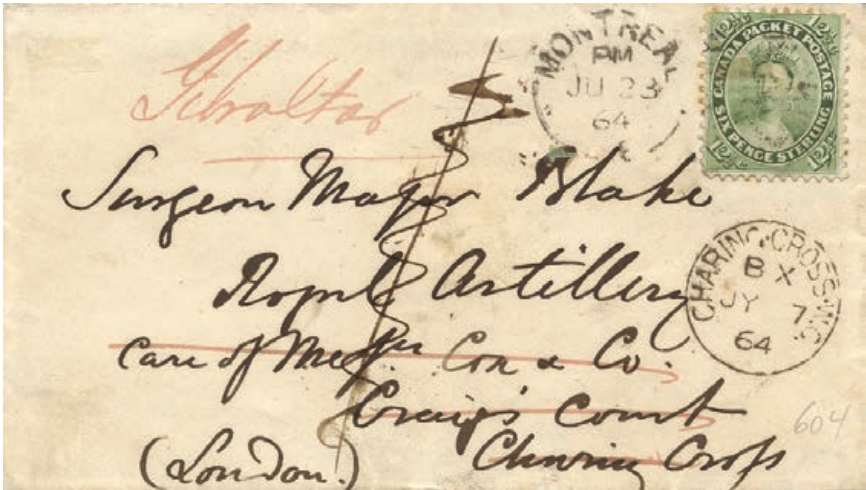 Gibraltar
MONTREAL
PM
JU 23
64
12½c 12½c
CANADA PACKET POSTAGE
SIX PENCE STERLING
12½c 12½c
Surgeon Major Blake
Royal Artillery
CHARING-CROSS-W.C
B X
JY 7
64
Care of Messrs Cox & Co.
Craig's Court
Charing Cross
(London.)
604